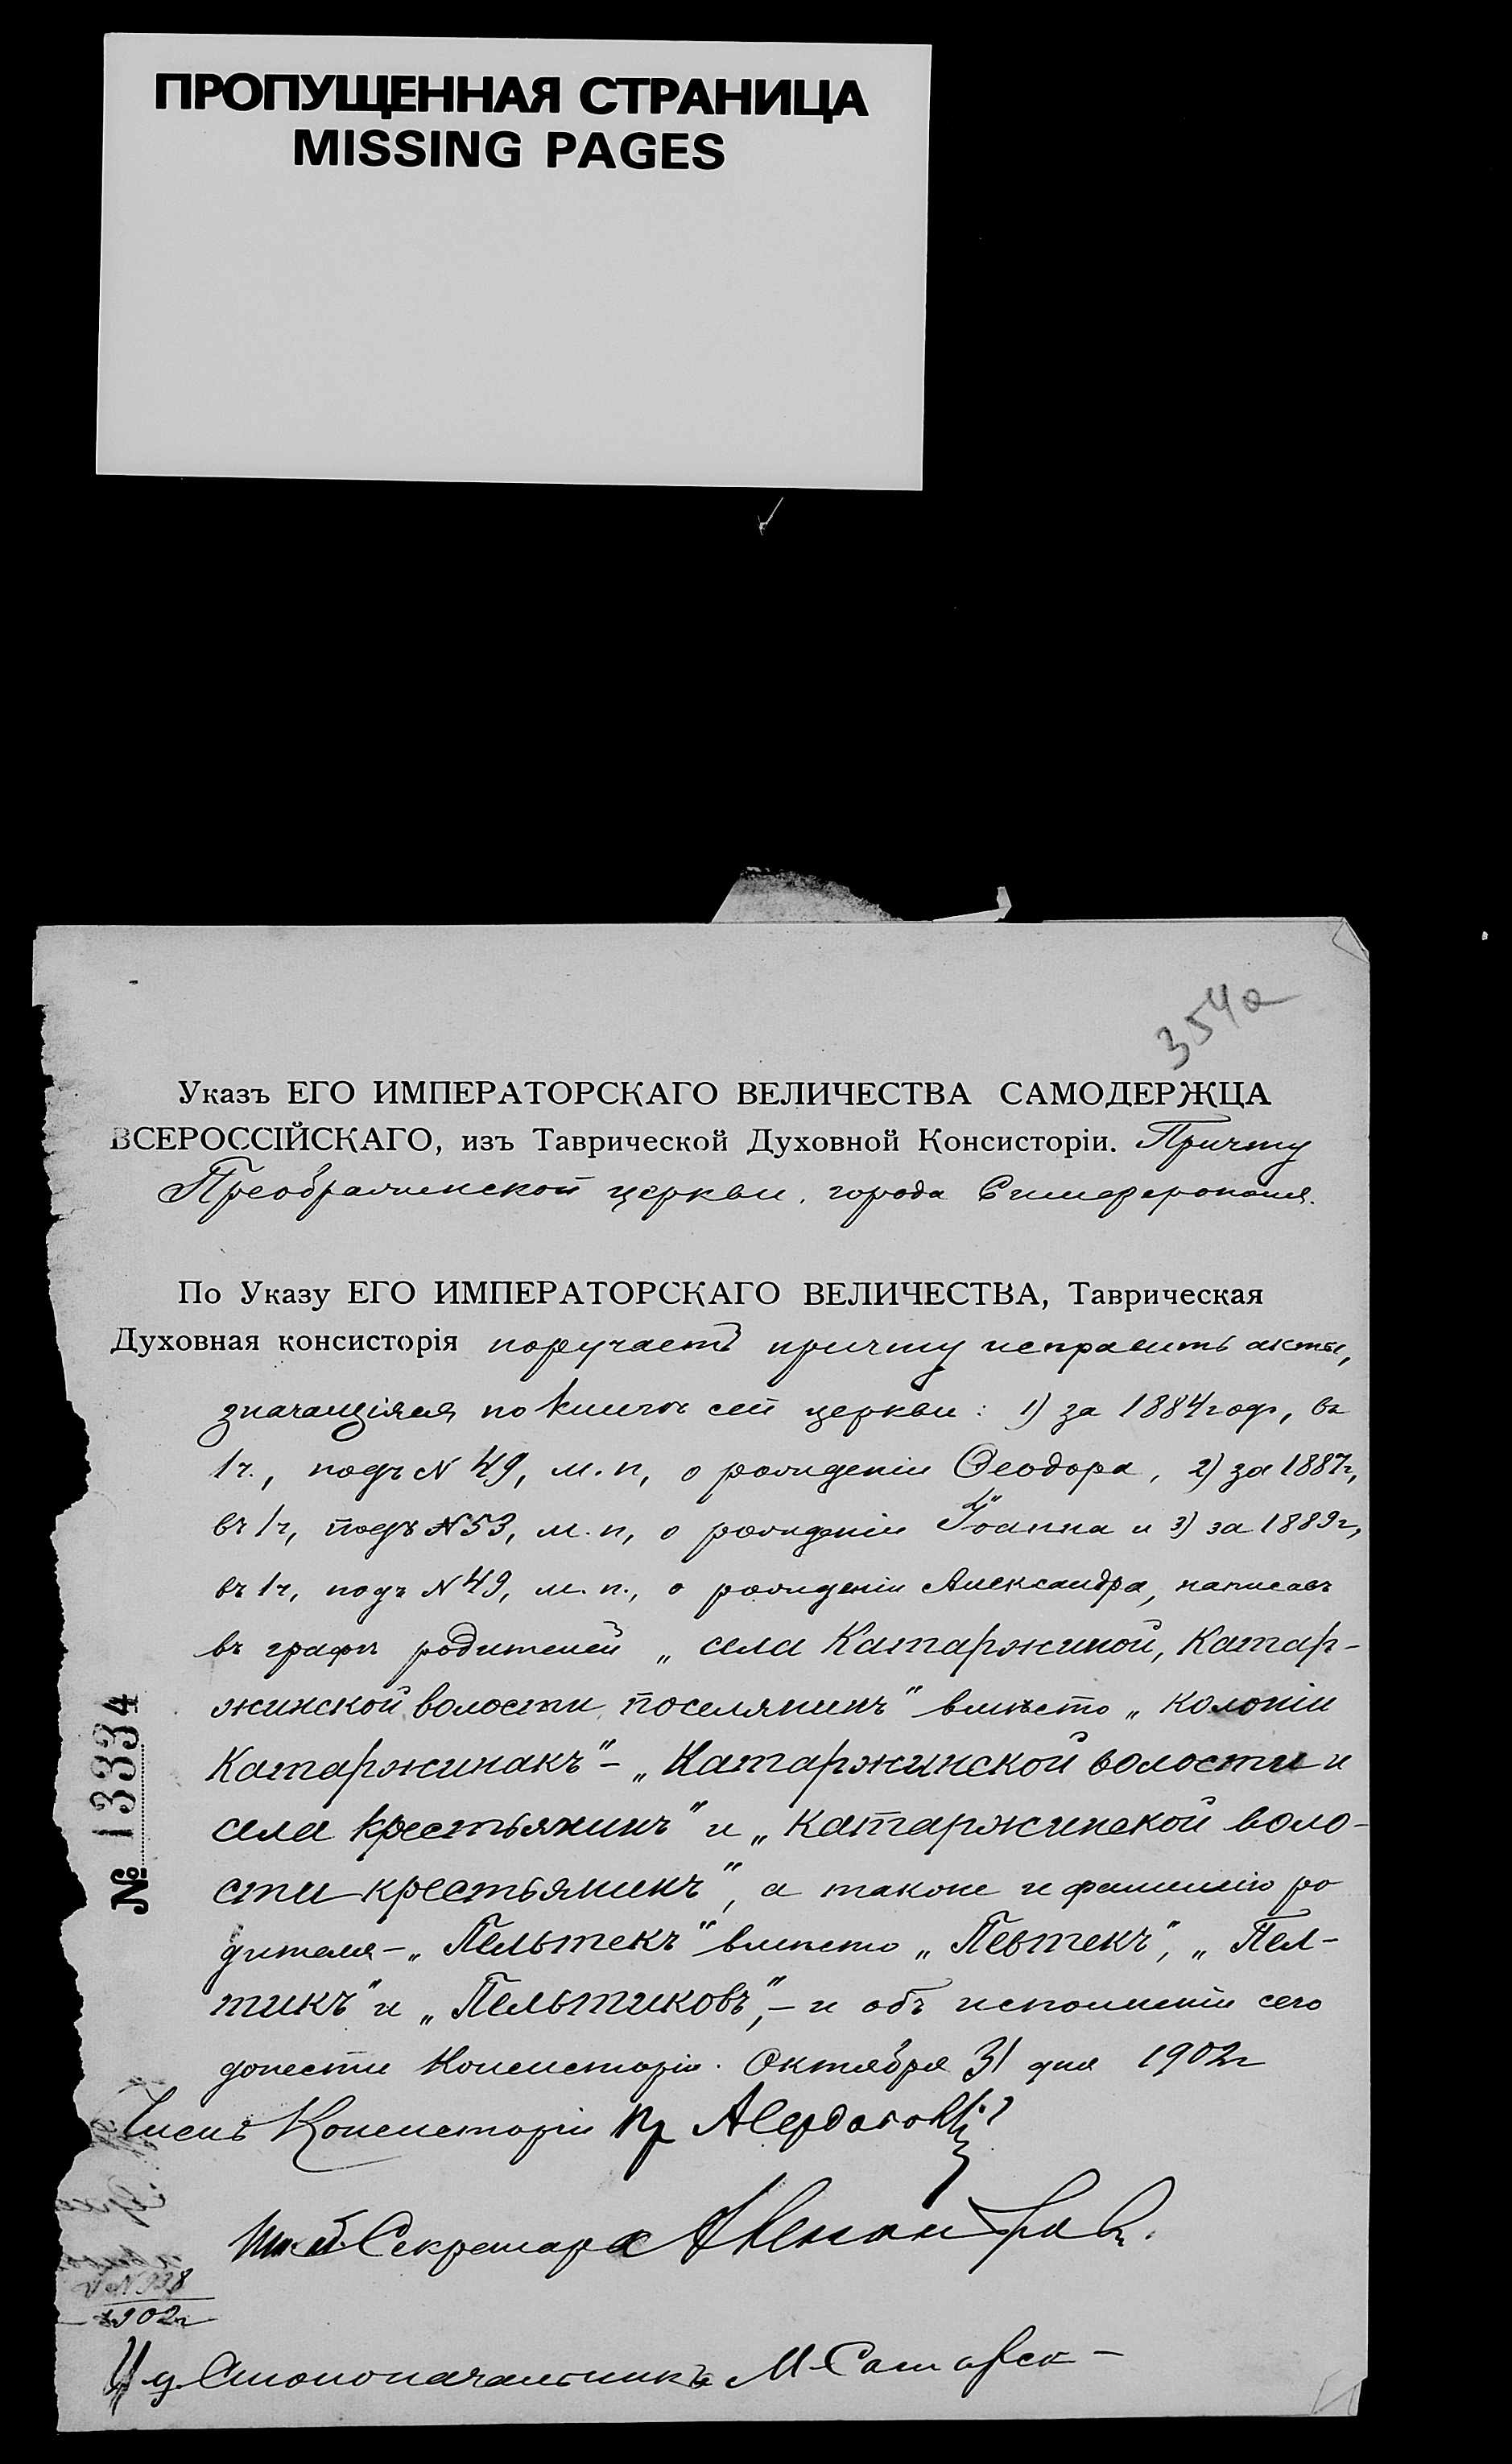 ПРОПУЩЕННАЯ СТРАНИЦА
MISSING PAGES
354а
Указъ ЕГО ИМПЕРАТОРСКАГО ВЕЛИЧЕСТВА САМОДЕРЖЦА
ВСЕРОССІЙСКАГО, изъ Таврической Духовной Консисторіи. Причту
Преображенской церкви, города Симферополя.
По Указу ЕГО ИМПЕРАТОРСКАГО ВЕЛИЧЕСТВА, Таврическая
Духовная консисторія поручаетъ причту исправить акты,
значащіяся по книгѣ сей церкви: 1) за 1884 годъ, въ
1 ч., подъ N 49, м. п, о рожденіи Ѳеодора, 2) за 1887 г,
въ 1 ч, подъ N 53, м. п, о рожденіи Іоанна и 3) за 1889 г,
въ 1 ч, подъ N 49, м. п., о рожденіи Александра, написавъ
въ графѣ родителей „села Катаржиной, Катар-
жинской волости, поселянинъ" вмѣсто „колоніи
Катаржинакъ" – „Катаржинской волости и
села крестьянинъ" и „Катаржинской воло-
сти крестьянинъ", а также и фамилію ро
дителя – „Пельтекъ" вмѣсто „Певтекъ", „Пел-
тикъ" и „Пельтиковъ", – и объ исполненіи сего
донести Консисторіи. Октября 31 дня 1902 г
Членъ Консисторіи Пр
Секретаря
№ 13334
1902 г
И. д. Столоначальника М.